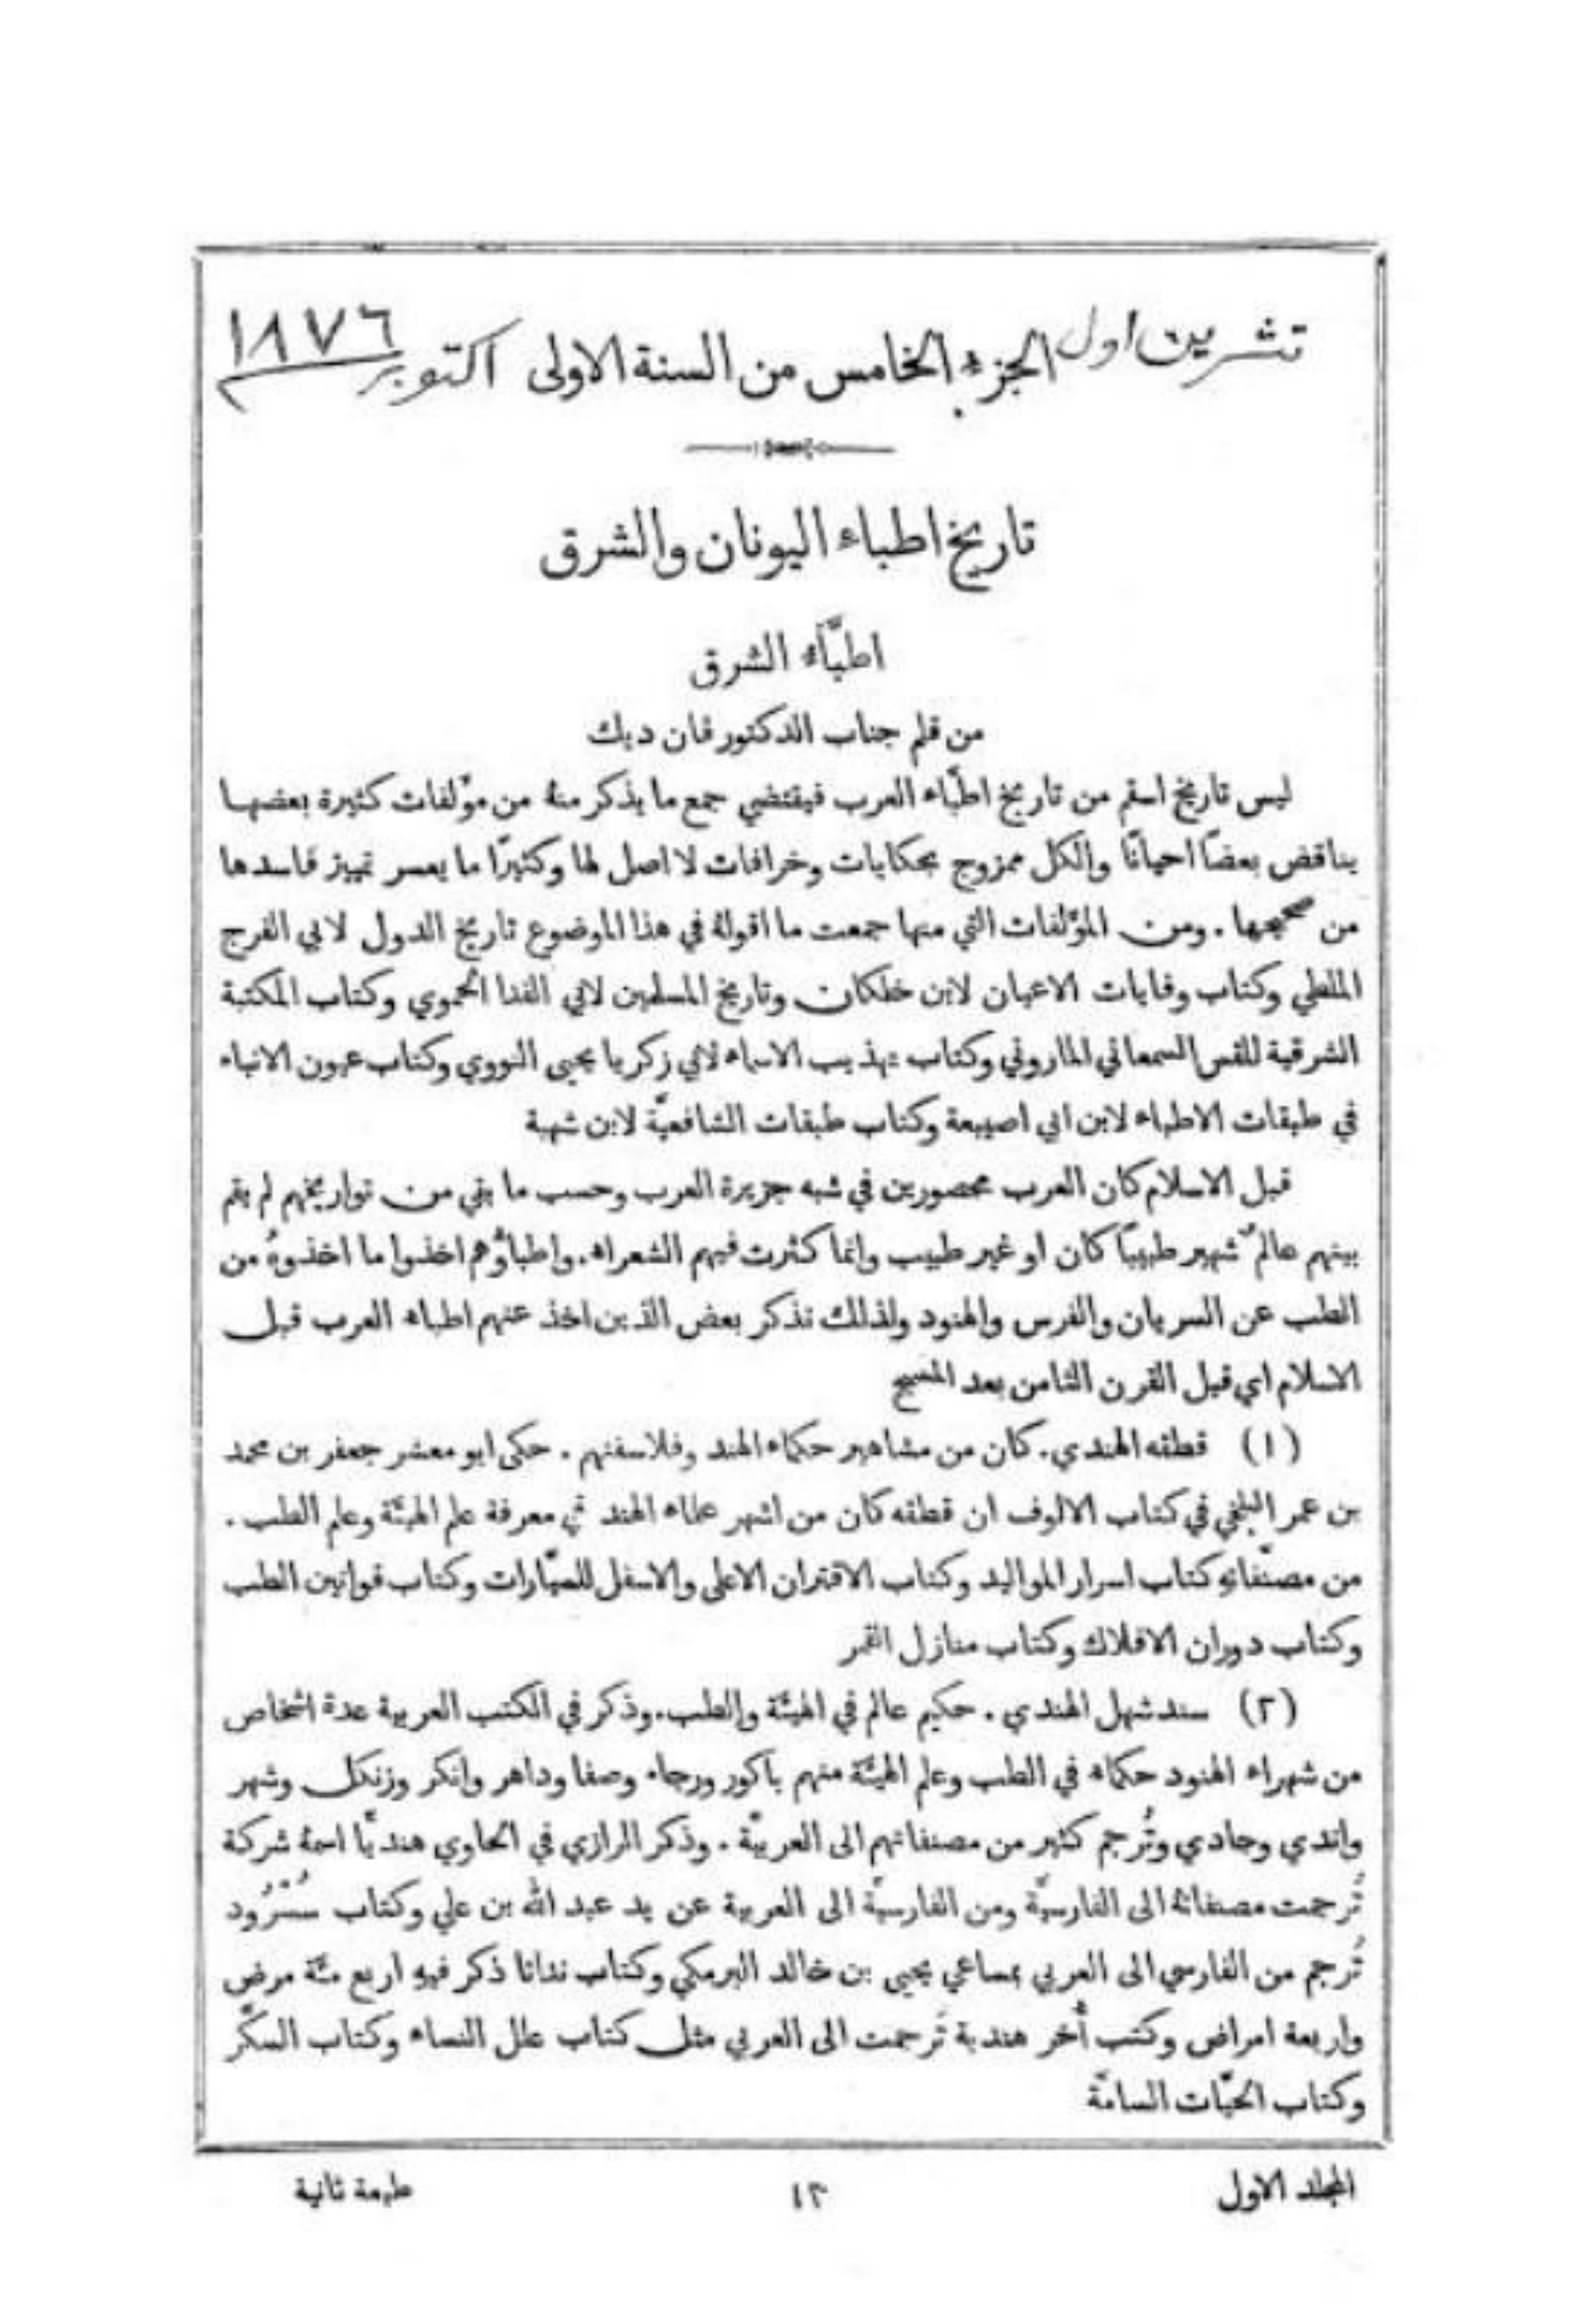 تشرين اول الجزء الخامس من السنة الاولى اكتوبر ١٨٧٦
تاريخ اطباء اليونان والشرق
اطبَّاء الشرق
من قلم جناب الدكتور فان ديك
ليس تاريخ اسقم من تاريخ اطبَّاء العرب فيقتضي جمع ما يذكر منهُ من مؤلفات كثيرة بعضها
يناقض بعضًا احيانًا والكل ممزوج بحكايات وخرافات لا اصل لها وكثيرًا ما يعسر تمييز فاسدها
من صحيحها . ومن المؤلفات التي منها جمعت ما اقولهُ في هذا الموضوع تاريخ الدول لابي الفرج
الملطي وكتاب وفايات الاعيان لابن خلكان وتاريخ المسلمين لابي الفدا الحموي وكتاب المكتبة
الشرقية للقس السمعاني الماروني وكتاب تهذيب الاسماء لابي زكريا يحيى النووي وكتاب عيون الانباء
في طبقات الاطباء لابن ابي اصيبعة وكتاب طبقات الشافعيَّة لابن شهبة
قبل الاسلام كان العرب محصورين في شبه جزيرة العرب وحسب ما بقي من تواريخهم لم يقم
بينهم عالمٌ شهير طبيبًا كان او غير طبيب وانما كثرت فيهم الشعراء . واطباؤُهم اخذوا ما اخذوهُ من
الطب عن السريان والفرس والهنود ولذلك نذكر بعض الذين اخذ عنهم اطباء العرب قبل
الاسلام اي قبل القرن الثامن بعد المسيح
(١) قطفه الهندي . كان من مشاهير حكماء الهند وفلاسفتهم . حكى ابو معشر جعفر بن محمد
بن عمر البلخي في كتاب الالوف ان قطفه كان من اشهر علماء الهند في معرفة علم الهيئة وعلم الطب .
من مصنَّفاتهِ كتاب اسرار المواليد وكتاب الاقتران الاعلى والاسفل للسيَّارات وكتاب قوانين الطب
وكتاب دوران الافلاك وكتاب منازل القمر
(٢) سندشهل الهندي . حكيم عالم في الهيئة والطب . وذكر في الكتب العربية عدة اشخاص
من شهراء الهنود حكماء في الطب وعلم الهيئة منهم باكور ورجاء وصفا وداهر وانكر وزنكل وشهر
واندي وجادي وتُرجم كثير من مصنفاتهم الى العربيَّة . وذكر الرازي في الحاوي هنديًّا اسمهُ شركة
تُرجمت مصنفاتهُ الى الفارسيَّة ومن الفارسيَّة الى العربية عن يد عبد الله بن علي وكتاب سُسْرُود
تُرجم من الفارسي الى العربي بمساعي يحيى بن خالد البرمكي وكتاب ندانا ذكر فيهِ اربع مئة مرض
واربعة امراض وكتب أُخر هندية تُرجمت الى العربي مثل كتاب علل النساء وكتاب السكَّر
وكتاب الحيَّات السامَّة
المجلد الاول ١٣ طبعة ثانية